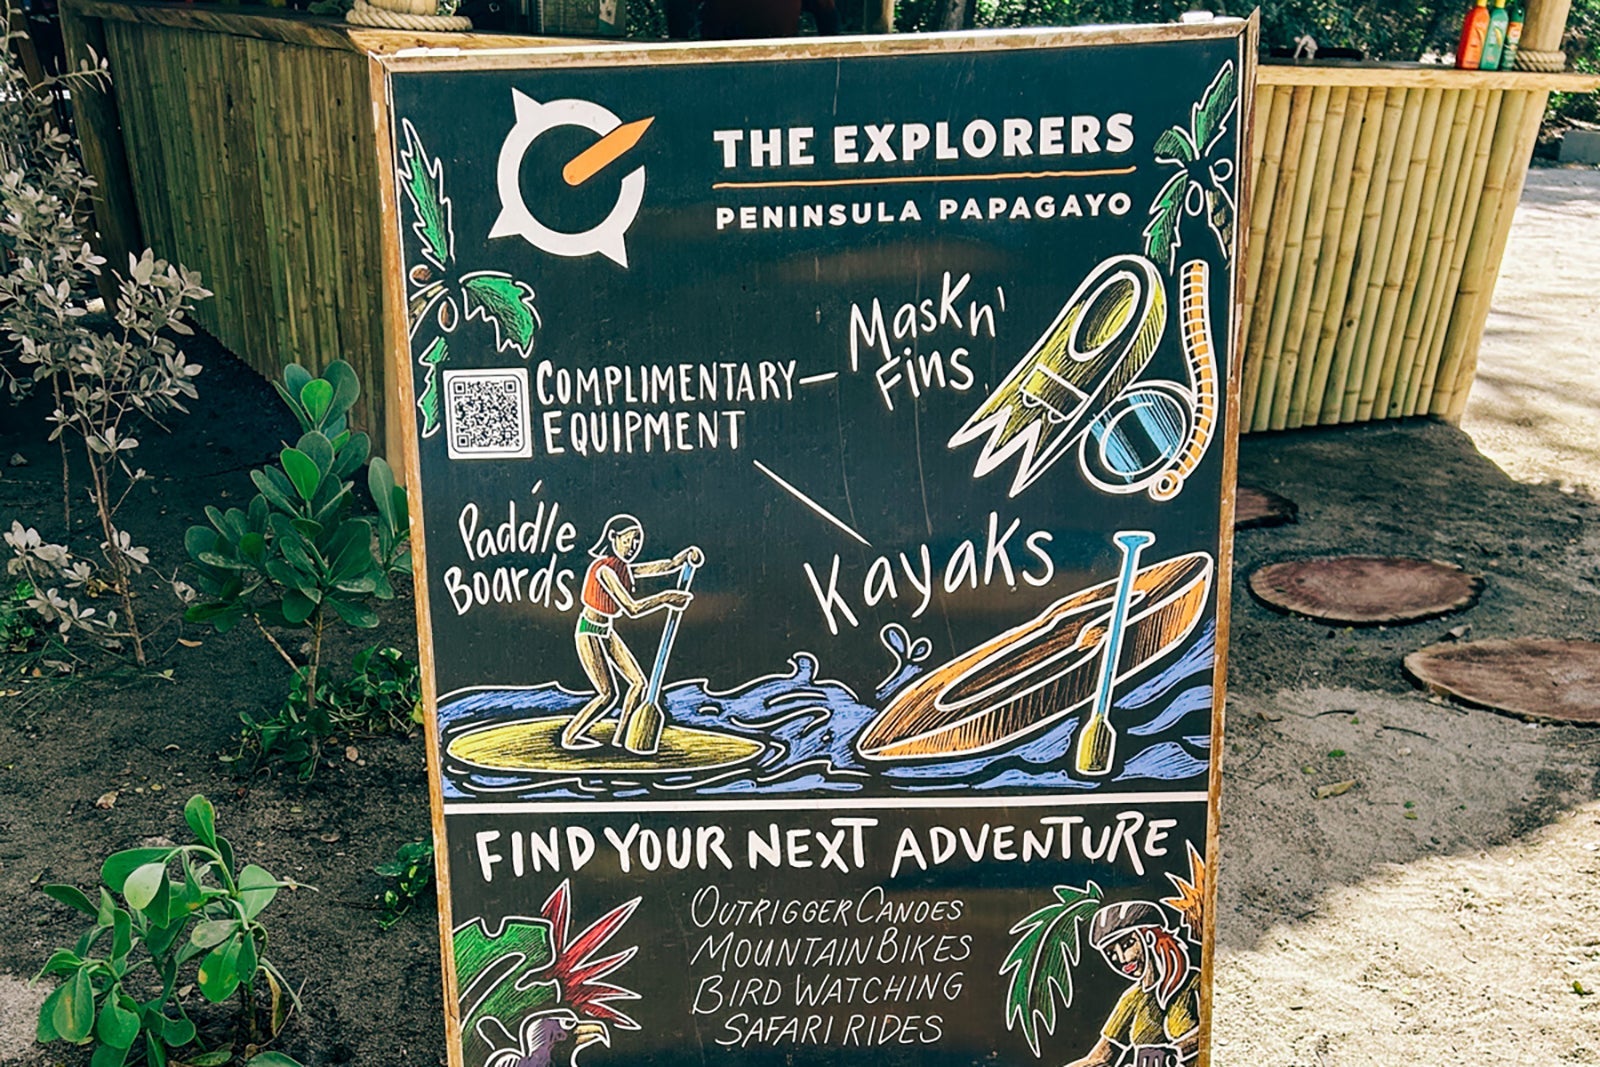 THE EXPLORERS
PENINSULA PAPAGAYO
Mask n'
Fins
COMPLIMENTARY
EQUIPMENT
Paddle
Boards
Kayaks
FIND YOUR NEXT ADVENTURE
OUTRIGGER CANOES
MOUNTAIN BIKES
BIRD WATCHING
SAFARI RIDES